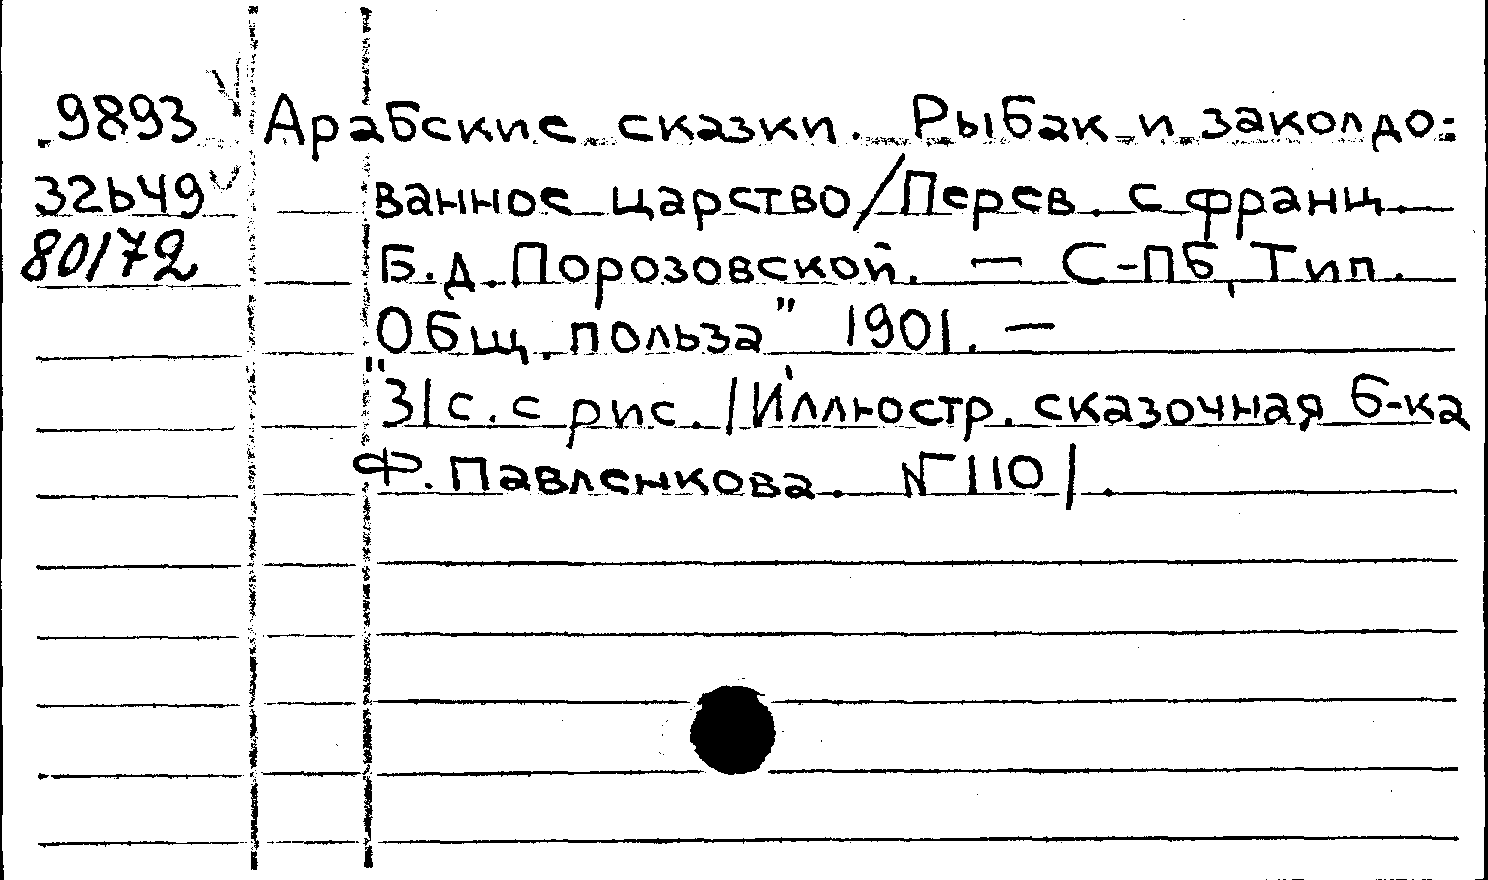 9893 Арабские сказки. Рыбак и заколдо-
32649 ванное царство/Перев. с франц.
80/72 Б.Д. Порозовской. — С-ПБ, Тип.
"Общ. польза" 1901. —
31с. с рис. /Иллюстр. сказочная б-ка
Ф. Павленкова. № 110/.